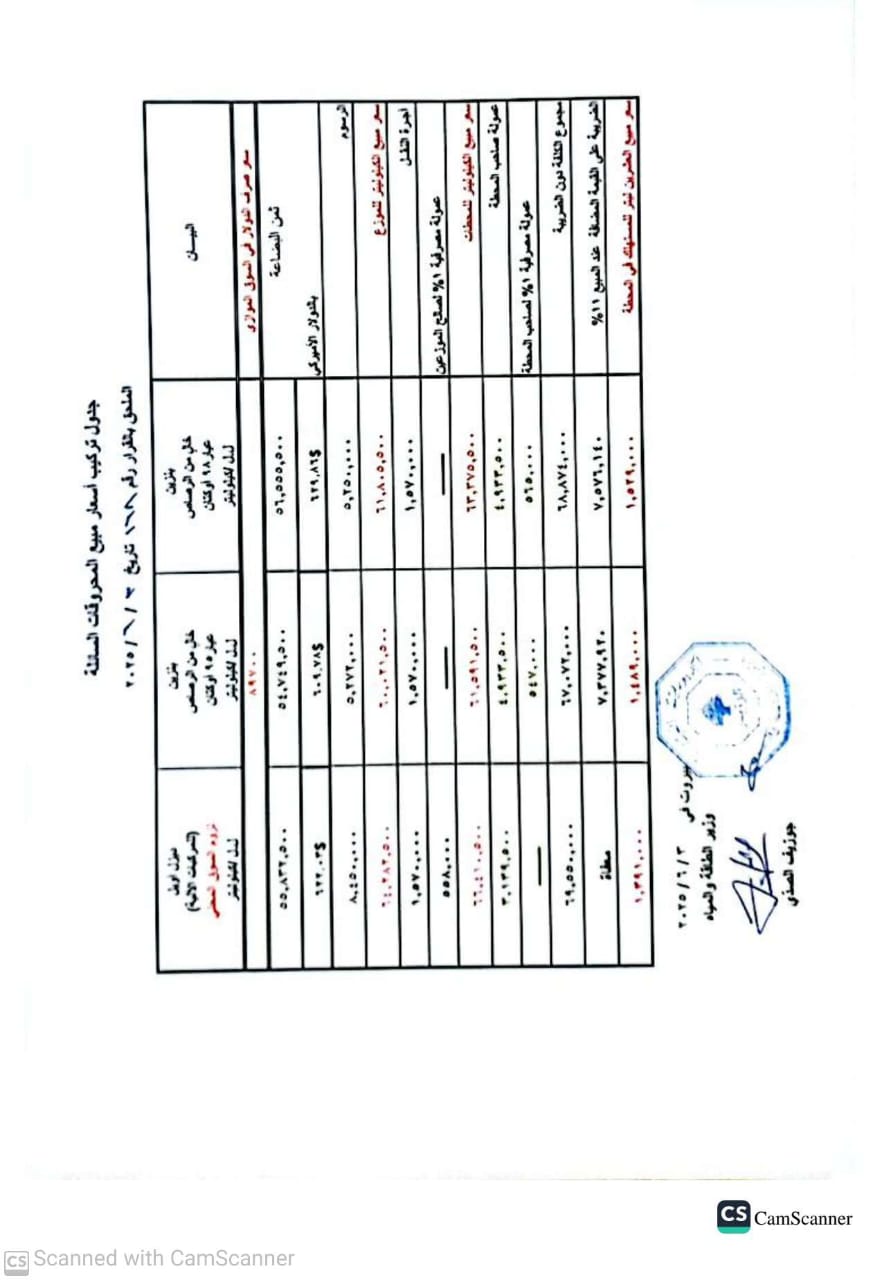 جدول تركيب أسعار مبيع المحروقات السائلة
الملحق بالقرار رقم ١٦٨ تاريخ ٢٠٢٥/٦/٣
البيــان
بنزين
خالي من الرصاص
عيار ٩٨ أوكتان
ل.ل./كيلوليتر
بنزين
خالي من الرصاص
عيار ٩٥ أوكتان
ل.ل./كيلوليتر
ديزل أويل
(المركبات الآلية)
لزوم السوق المحلي
ل.ل./كيلوليتر
سعر صرف الدولار في السوق الموازي ٨٩٧٠٠
ثمن البضاعة ٥٦,٥٥٥,٥٠٠ ٥٤,٧٤٩,٥٠٠ ٥٥,٨٣٢,٥٠٠
بالدولار الأميركي ٦٢٩.٨٦$ ٦٠٩.٧٨$ ٦٢٢.٠٣$
الرسوم ٥,٢٥٠,٠٠٠ ٥,٢٧٢,٠٠٠ ٨,٤٥٠,٠٠٠
سعر مبيع الكيلوليتر للموزع ٦١,٨٠٥,٥٠٠ ٦٠,٠٢١,٥٠٠ ٦٤,٢٨٢,٥٠٠
أجرة النقل ١,٥٧٠,٠٠٠ ١,٥٧٠,٠٠٠ ١,٥٧٠,٠٠٠
عمولة مصرفية ١% لصالح الموزعين — — ٥٥٨,٠٠٠
سعر مبيع الكيلوليتر للمحطات ٦٣,٣٧٥,٥٠٠ ٦١,٥٩١,٥٠٠ ٦٦,٤١٠,٥٠٠
عمولة صاحب المحطة ٤,٩٣٣,٥٠٠ ٤,٩٣٣,٥٠٠ ٣,١٣٩,٥٠٠
عمولة مصرفية ١% لصاحب المحطة ٥٦٥,٠٠٠ ٥٤٧,٠٠٠ —
مجموع الكلفة دون الضريبة ٦٨,٨٧٤,٠٠٠ ٦٧,٠٧٢,٠٠٠ ٦٩,٥٥٠,٠٠٠
الضريبة على القيمة المضافة عند المبيع ١١% ٧,٥٧٦,١٤٠ ٧,٣٧٧,٩٢٠ معفاة
سعر مبيع العشرين ليتر للمستهلك في المحطة ١,٥٢٩,٠٠٠ ١,٤٨٩,٠٠٠ ١,٣٩١,٠٠٠
بيروت في ٢٠٢٥/٦/٣
وزير الطاقة والمياه
جوزيف الصدّي
CS CamScanner
CS Scanned with CamScanner